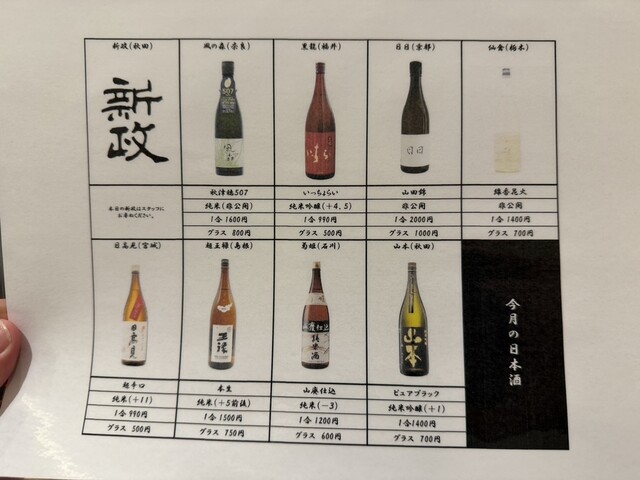 新政(秋田)
新政
本日の新政はスタッフに
お尋ねください。
風の森(奈良)
507
秋津穂507
純米(非公開)
1合 1600円
グラス 800円
黒龍(福井)
いっちょらい
純米吟醸(+4.5)
1合 990円
グラス 500円
日日(京都)
日日
山田錦
非公開
1合 2000円
グラス 1000円
仙禽(栃木)
線香花火
非公開
1合 1400円
グラス 700円
日高見(宮城)
日高見
超辛口
純米(+11)
1合 990円
グラス 500円
超王祿(島根)
王祿
本生
純米(+5前後)
1合 1500円
グラス 750円
菊姫(石川)
山廃仕込
純米酒
山廃仕込
純米(-3)
1合 1200円
グラス 600円
山本(秋田)
山本
ピュアブラック
純米吟醸(+1)
1合1400円
グラス 700円
今月の日本酒